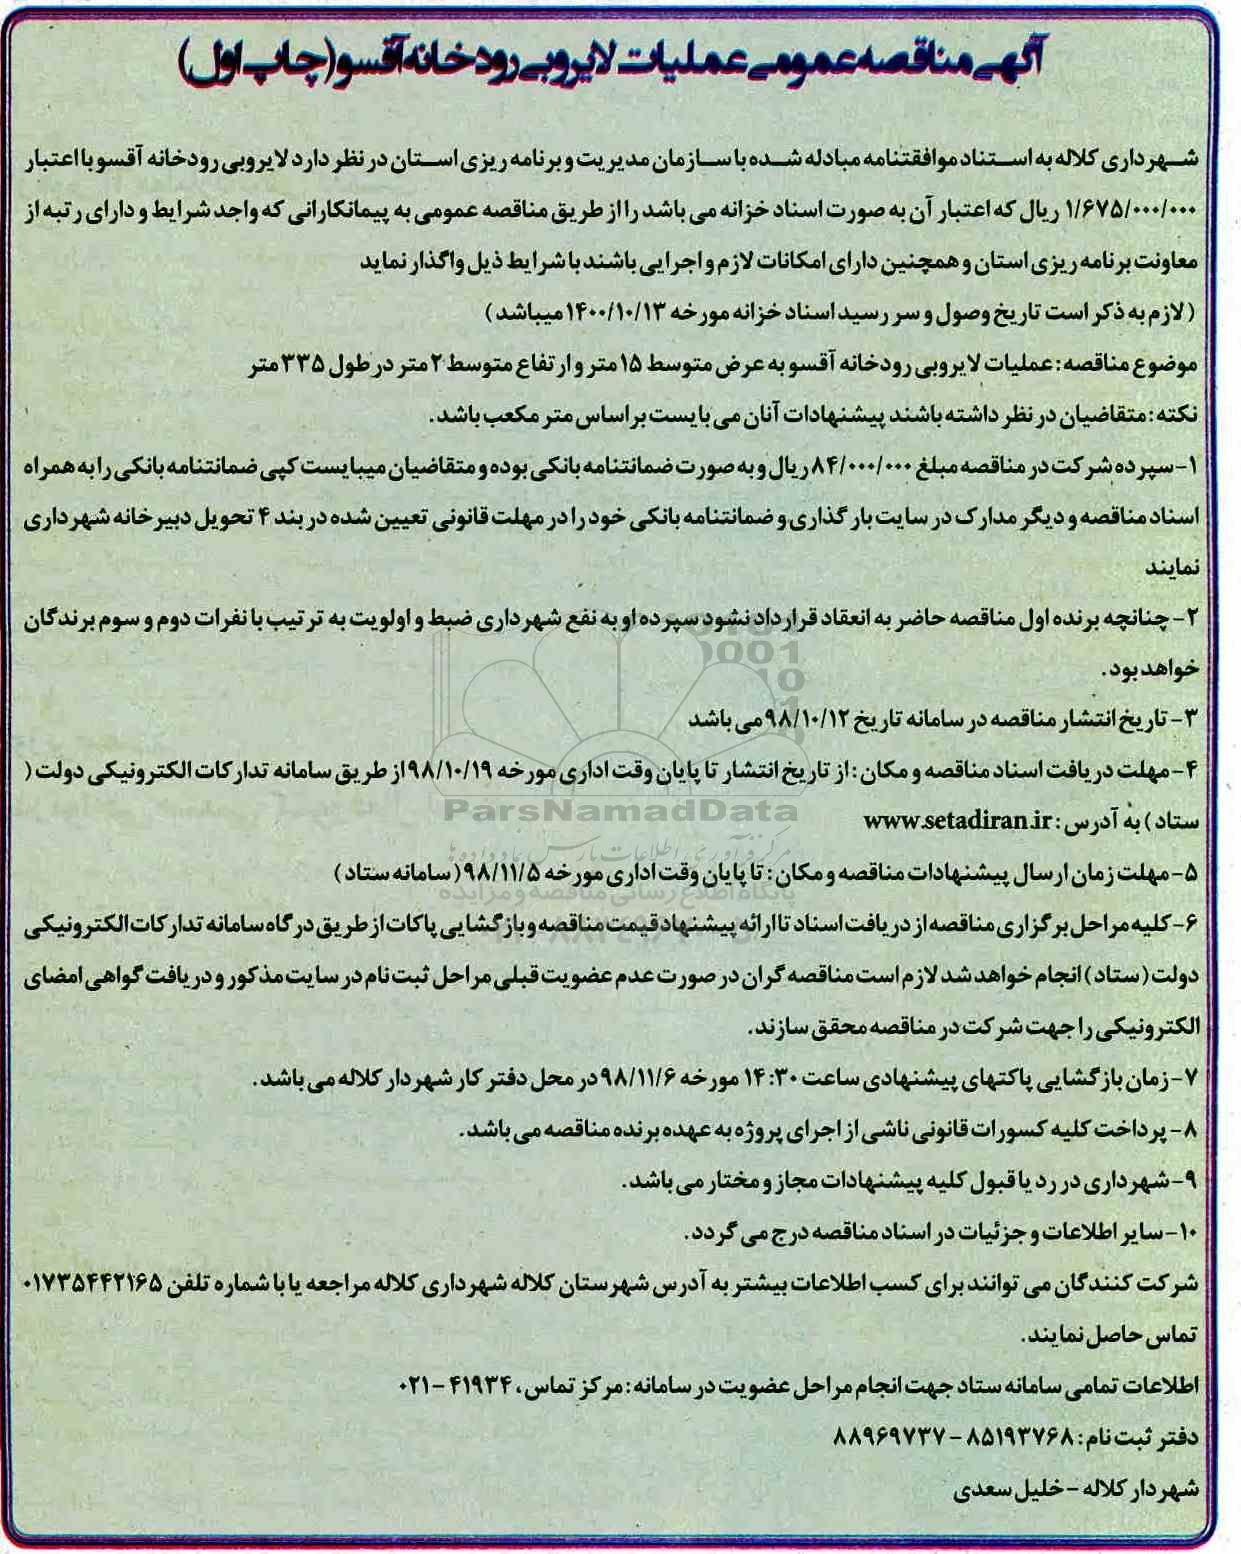 آگهی مناقصه عمومی عملیات لایروبی رودخانه آقسو (چاپ اول)
شهرداری کلاله به استناد موافقتنامه مبادله شده با سازمان مدیریت و برنامه ریزی استان در نظر دارد لایروبی رودخانه آقسو با اعتبار
۱/۶۷۵/۰۰۰/۰۰۰ ریال که اعتبار آن به صورت اسناد خزانه می باشد را از طریق مناقصه عمومی به پیمانکارانی که واجد شرایط و دارای رتبه از
معاونت برنامه ریزی استان و همچنین دارای امکانات لازم و اجرایی باشند با شرایط ذیل واگذار نماید
(لازم به ذکر است تاریخ وصول و سر رسید اسناد خزانه مورخه ۱۴۰۰/۱۰/۱۳ میباشد)
موضوع مناقصه: عملیات لایروبی رودخانه آقسو به عرض متوسط ۱۵ متر و ارتفاع متوسط ۲ متر در طول ۳۳۵ متر
نکته: متقاضیان در نظر داشته باشند پیشنهادات آنان می بایست بر اساس متر مکعب باشد.
۱- سپرده شرکت در مناقصه مبلغ ۸۴/۰۰۰/۰۰۰ ریال و به صورت ضمانتنامه بانکی بوده و متقاضیان میبایست کپی ضمانتنامه بانکی را به همراه
اسناد مناقصه و دیگر مدارک در سایت بار گذاری و ضمانتنامه بانکی خود را در مهلت قانونی تعیین شده در بند ۴ تحویل دبیرخانه شهرداری
نمایند
۲- چنانچه برنده اول مناقصه حاضر به انعقاد قرارداد نشود سپرده او به نفع شهرداری ضبط و اولویت به ترتیب با نفرات دوم و سوم برندگان
خواهد بود.
۳- تاریخ انتشار مناقصه در سامانه تاریخ ۹۸/۱۰/۱۲ می باشد
۴- مهلت دریافت اسناد مناقصه و مکان: از تاریخ انتشار تا پایان وقت اداری مورخه ۹۸/۱۰/۱۹ از طریق سامانه تدارکات الکترونیکی دولت (
ستاد) به آدرس: www.setadiran.ir
۵- مهلت زمان ارسال پیشنهادات مناقصه و مکان: تا پایان وقت اداری مورخه ۹۸/۱۱/۵ (سامانه ستاد)
۶- کلیه مراحل برگزاری مناقصه از دریافت اسناد تا ارائه پیشنهاد قیمت مناقصه و بازگشایی پاکات از طریق درگاه سامانه تدارکات الکترونیکی
دولت (ستاد) انجام خواهد شد لازم است مناقصه گران در صورت عدم عضویت قبلی مراحل ثبت نام در سایت مذکور و دریافت گواهی امضای
الکترونیکی را جهت شرکت در مناقصه محقق سازند.
۷- زمان بازگشایی پاکتهای پیشنهادی ساعت ۱۴:۳۰ مورخه ۹۸/۱۱/۶ در محل دفتر کار شهردار کلاله می باشد.
۸- پرداخت کلیه کسورات قانونی ناشی از اجرای پروژه به عهده برنده مناقصه می باشد.
۹- شهرداری در رد یا قبول کلیه پیشنهادات مجاز و مختار می باشد.
۱۰- سایر اطلاعات و جزئیات در اسناد مناقصه درج می گردد.
شرکت کنندگان می توانند برای کسب اطلاعات بیشتر به آدرس شهرستان کلاله شهرداری کلاله مراجعه یا با شماره تلفن ۰۱۷۳۵۴۴۲۱۶۵
تماس حاصل نمایند.
اطلاعات تمامی سامانه ستاد جهت انجام مراحل عضویت در سامانه: مرکز تماس، ۴۱۹۳۴ - ۰۲۱
دفتر ثبت نام: ۸۵۱۹۳۷۶۸ - ۸۸۹۶۹۷۳۷
شهردار کلاله - خلیل سعدی
ParsNamadData
مرکز فرآوری اطلاعات پارس نماد داده ها
پایگاه اطلاع رسانی مناقصه و مزایده